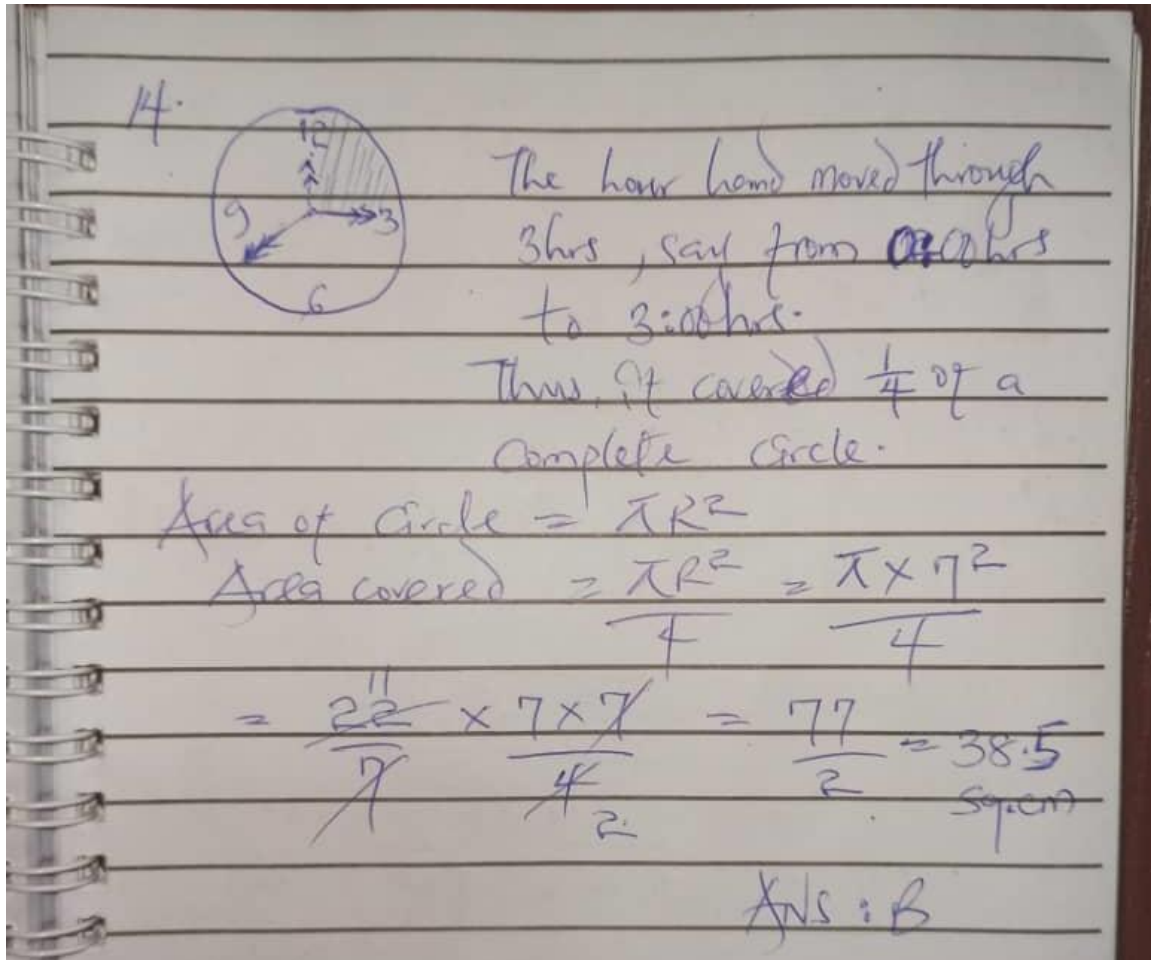 14.
12
9
3
6
The hour hand moved through
3hrs, say from 00:00hrs
to 3:00hrs.
Thus, it covered 1/4 of a
complete circle.
Area of circle = πR²
Area covered = πR²/4 = π×7²/4
= 22/7 × 7×7/4 = 77/2 = 38.5
11
2
sq.cm
Ans: B